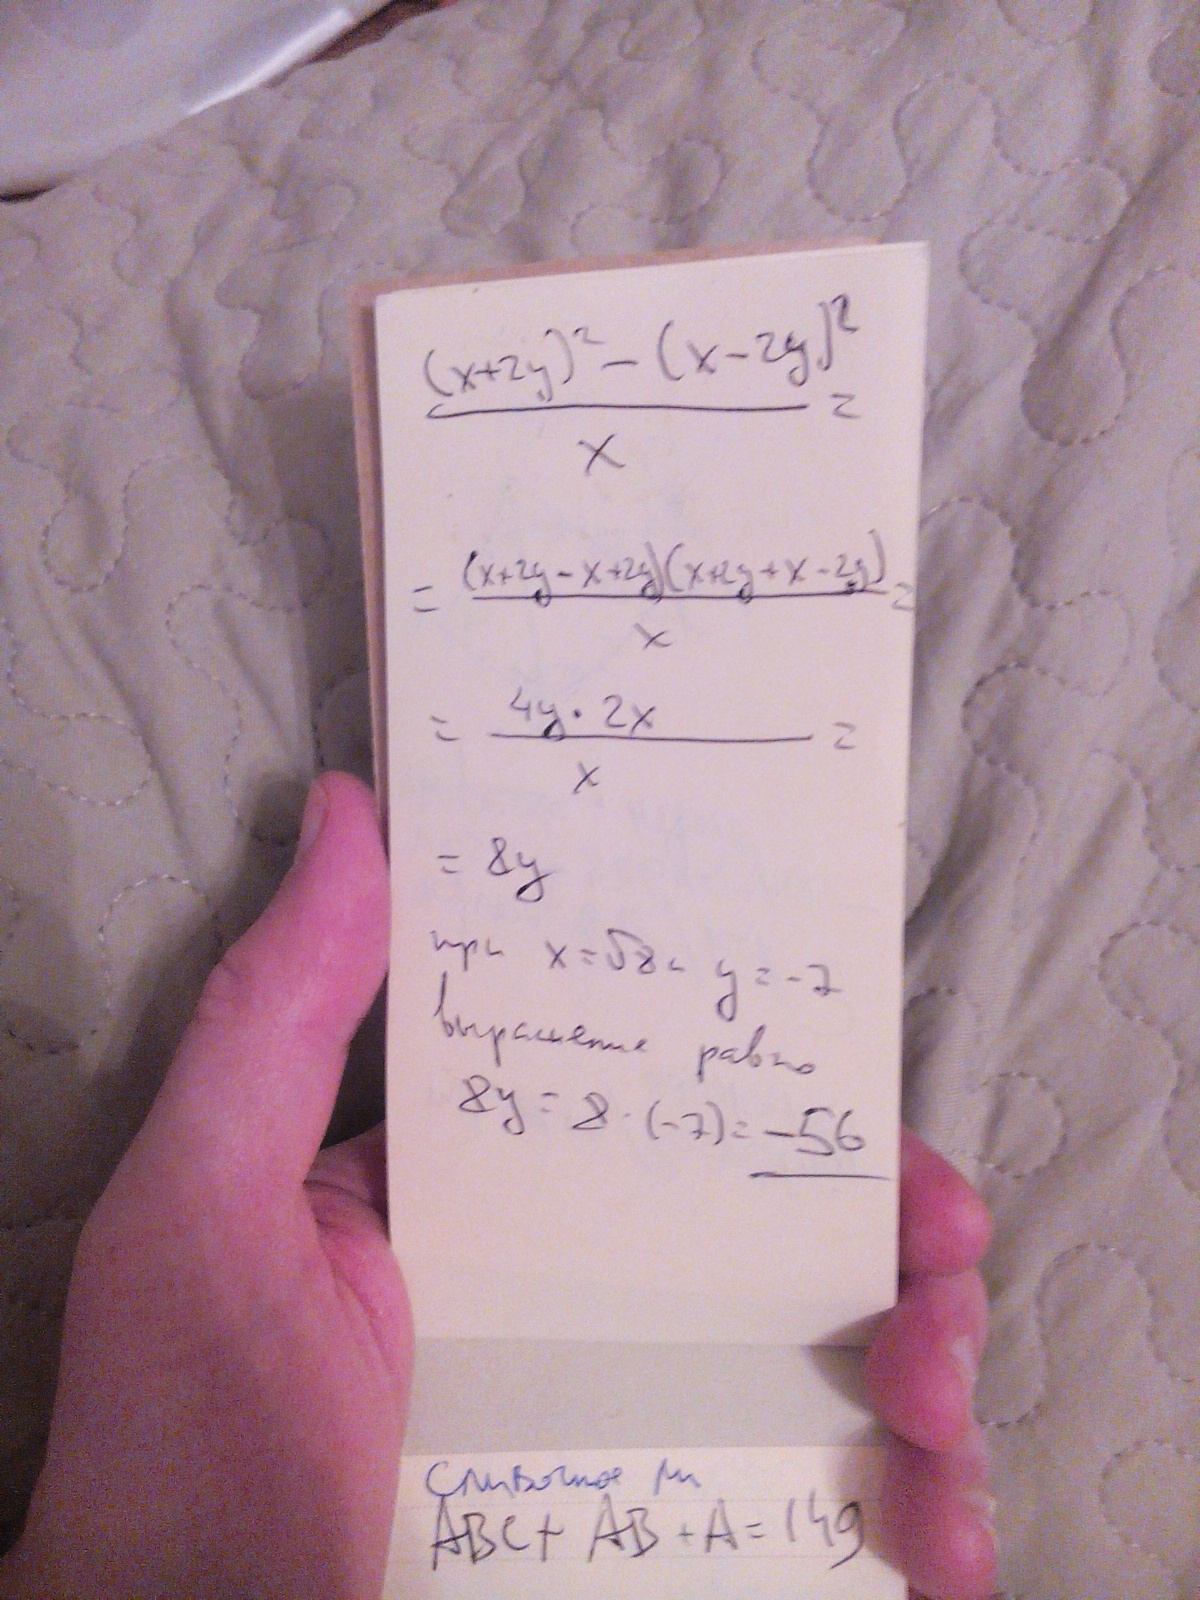 (x+2y)² - (x-2y)²
=
x
= (x+2y-x+2y)(x+2y+x-2y) =
x
= 4y·2x =
x
= 8y
при x=√8 и y=-7
выражение равно
8y = 8·(-7) = -56
ABC + AB + A = 149